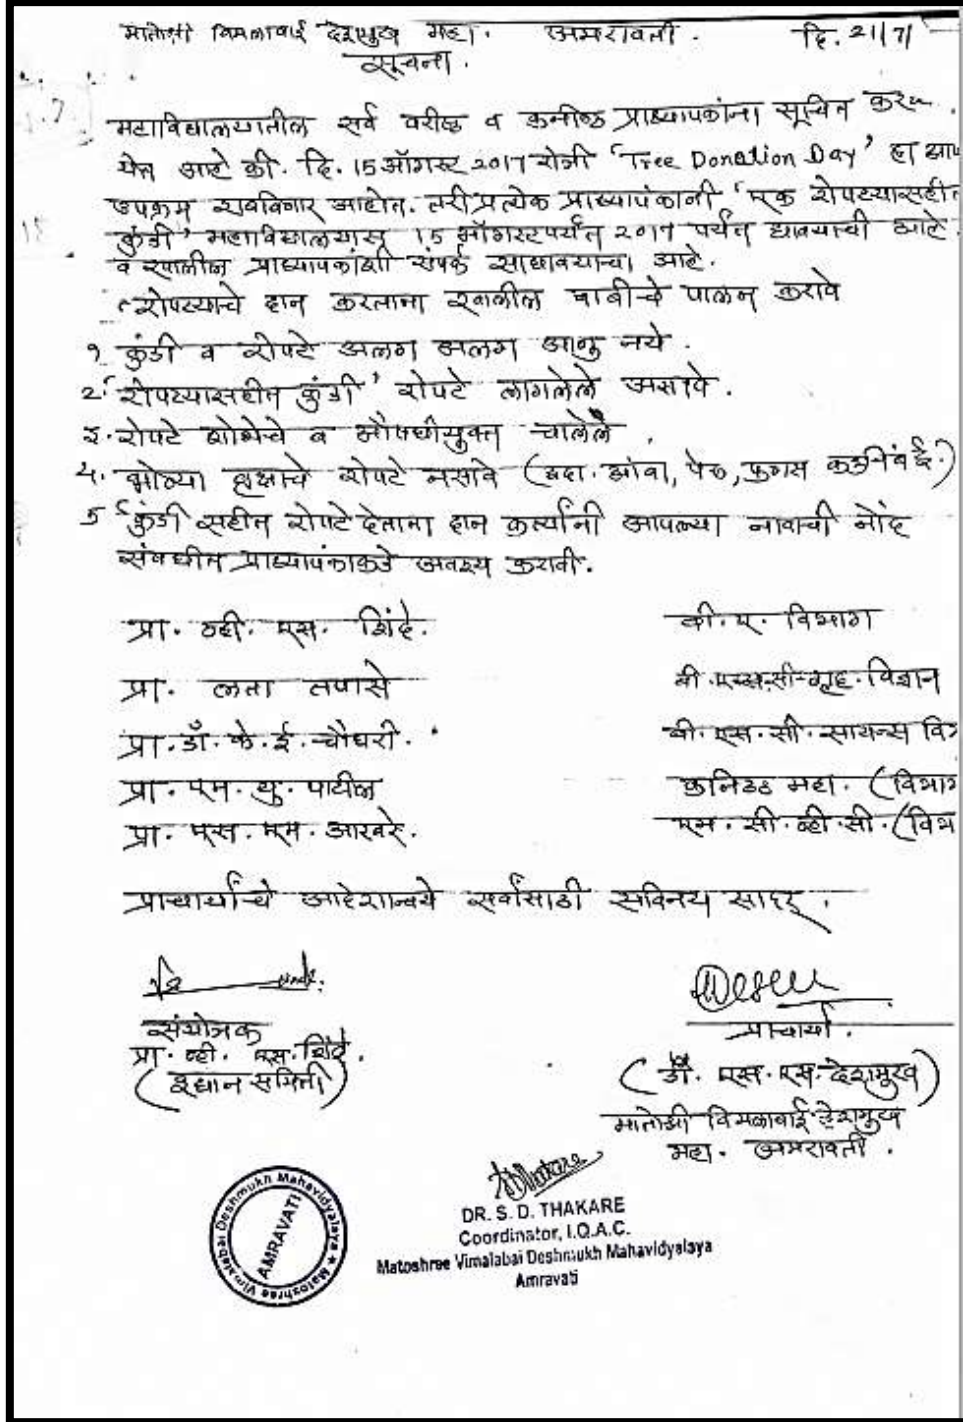 मातोश्री विमलाबाई देशमुख महा. अमरावती. दि. 21/7/
सूचना.
महाविद्यालयातील सर्व वरीष्ठ व कनीष्ठ प्राध्यापकांना सूचित
येत आहे की. दि. 15 ऑगस्ट 2017 रोजी 'Tree Donation Day' हा
उपक्रम राबविणार आहोत. तरी प्रत्येक प्राध्यापकांनी 'एक रोपट्यासहीत
कुंडी' महाविद्यालयास 15 ऑगस्टपर्यंत 2017 पर्यंत द्यावयाची आहे.
व खालील प्राध्यापकांशी संपर्क साधावयाचा आहे.
रोपट्याचे दान करताना खालील बाबीचे पालन करावे
१ कुंडी व रोपटे अलग अलग आणु नये.
2. 'रोपट्यासहीत कुंडी' रोपटे लागलेले असावे.
३. रोपटे शोभेचे व औषधीयुक्त चालेले.
4. मोठ्या वृक्षाचे रोपटे नसावे (उदा. आंबा, पेरु, फणस कडुनिंब ई.)
5 'कुंडी सहीत रोपटे देताना दान कर्त्यांनी आपल्या नावाची नोंद
संबधीत प्राध्यापकाकडे अवश्य करावी.
प्रा. व्ही. एस. शिंदे. बी. ए. विभाग
प्रा. लता तपासे बी. एस्स.सी-गृह. विज्ञान
प्रा. डॉ. के. ई. चौधरी. बी. एस. सी. सायन्स
प्रा. एम. यु. पाटील कनिष्ठ महा. (विभा
प्रा. एस. एम. आखरे. एम. सी. व्ही. सी. (विभ
प्राचार्यांचे आदेशान्वये सर्वांसाठी सविनय सादर.
संयोजक
प्राचार्या.
प्रा. व्ही. एस. शिंदे.
(डॉ. एस. एस. देशमुख)
(उद्यान समिती)
मातोश्री विमलाबाई देशमुख
महा. अमरावती.
Matoshree Vimalabai Deshmukh Mahavidyalaya
AMRAVATI
DR. S. D. THAKARE
Coordinator, I.Q.A.C.
Matoshree Vimalabai Deshmukh Mahavidyalaya
Amravati